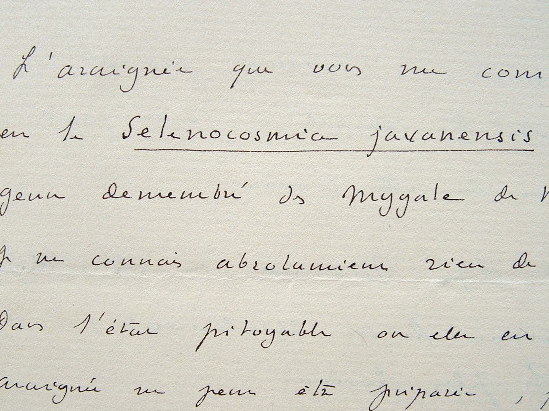 L'araignée que vous me com
en le Selenocosmia javanensis
genre démembré des Mygale de
Je ne connais absolument rien de
Dans l'état pitoyable où elle en
araignée ne peut être préparée,